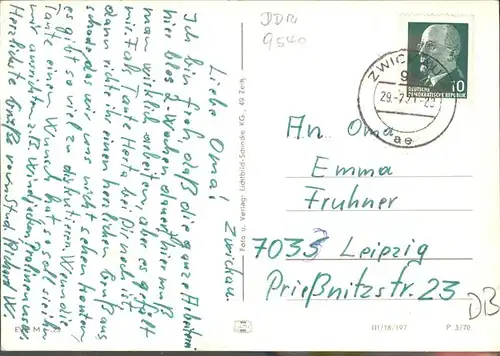 DDR
9540
ZWIC
95
29.-7.71-20
ae
DEUTSCHE
DEMOKRATISCHE REPUBLIK
10
An Oma
Emma
Fruhner
7035 Leipzig
Prießnitzstr. 23
DB
III/18/197 P 3/70
Foto u. Verlag: Lichtbild-Schincke KG., 49 Zeitz
EVP M
Zwickau
Liebe Oma!
Ich bin froh, daß die ganze Arbeiterei
hier blos 4 Wochen dauert, hier muß
man wirklich arbeiten, aber es gefällt
mir. Falls Tante Herta bei Dir noch ist,
dann richte ihr einen herzlichen Gruß aus,
schade, das wir uns nicht sehen konnten,
es gibt so viel zu diskutieren. Wenn die
Tante einen Wunsch hat so soll sie ihn
mir ausrichten z. B.
Herzlichste Grüße vom Stud. Richard W.